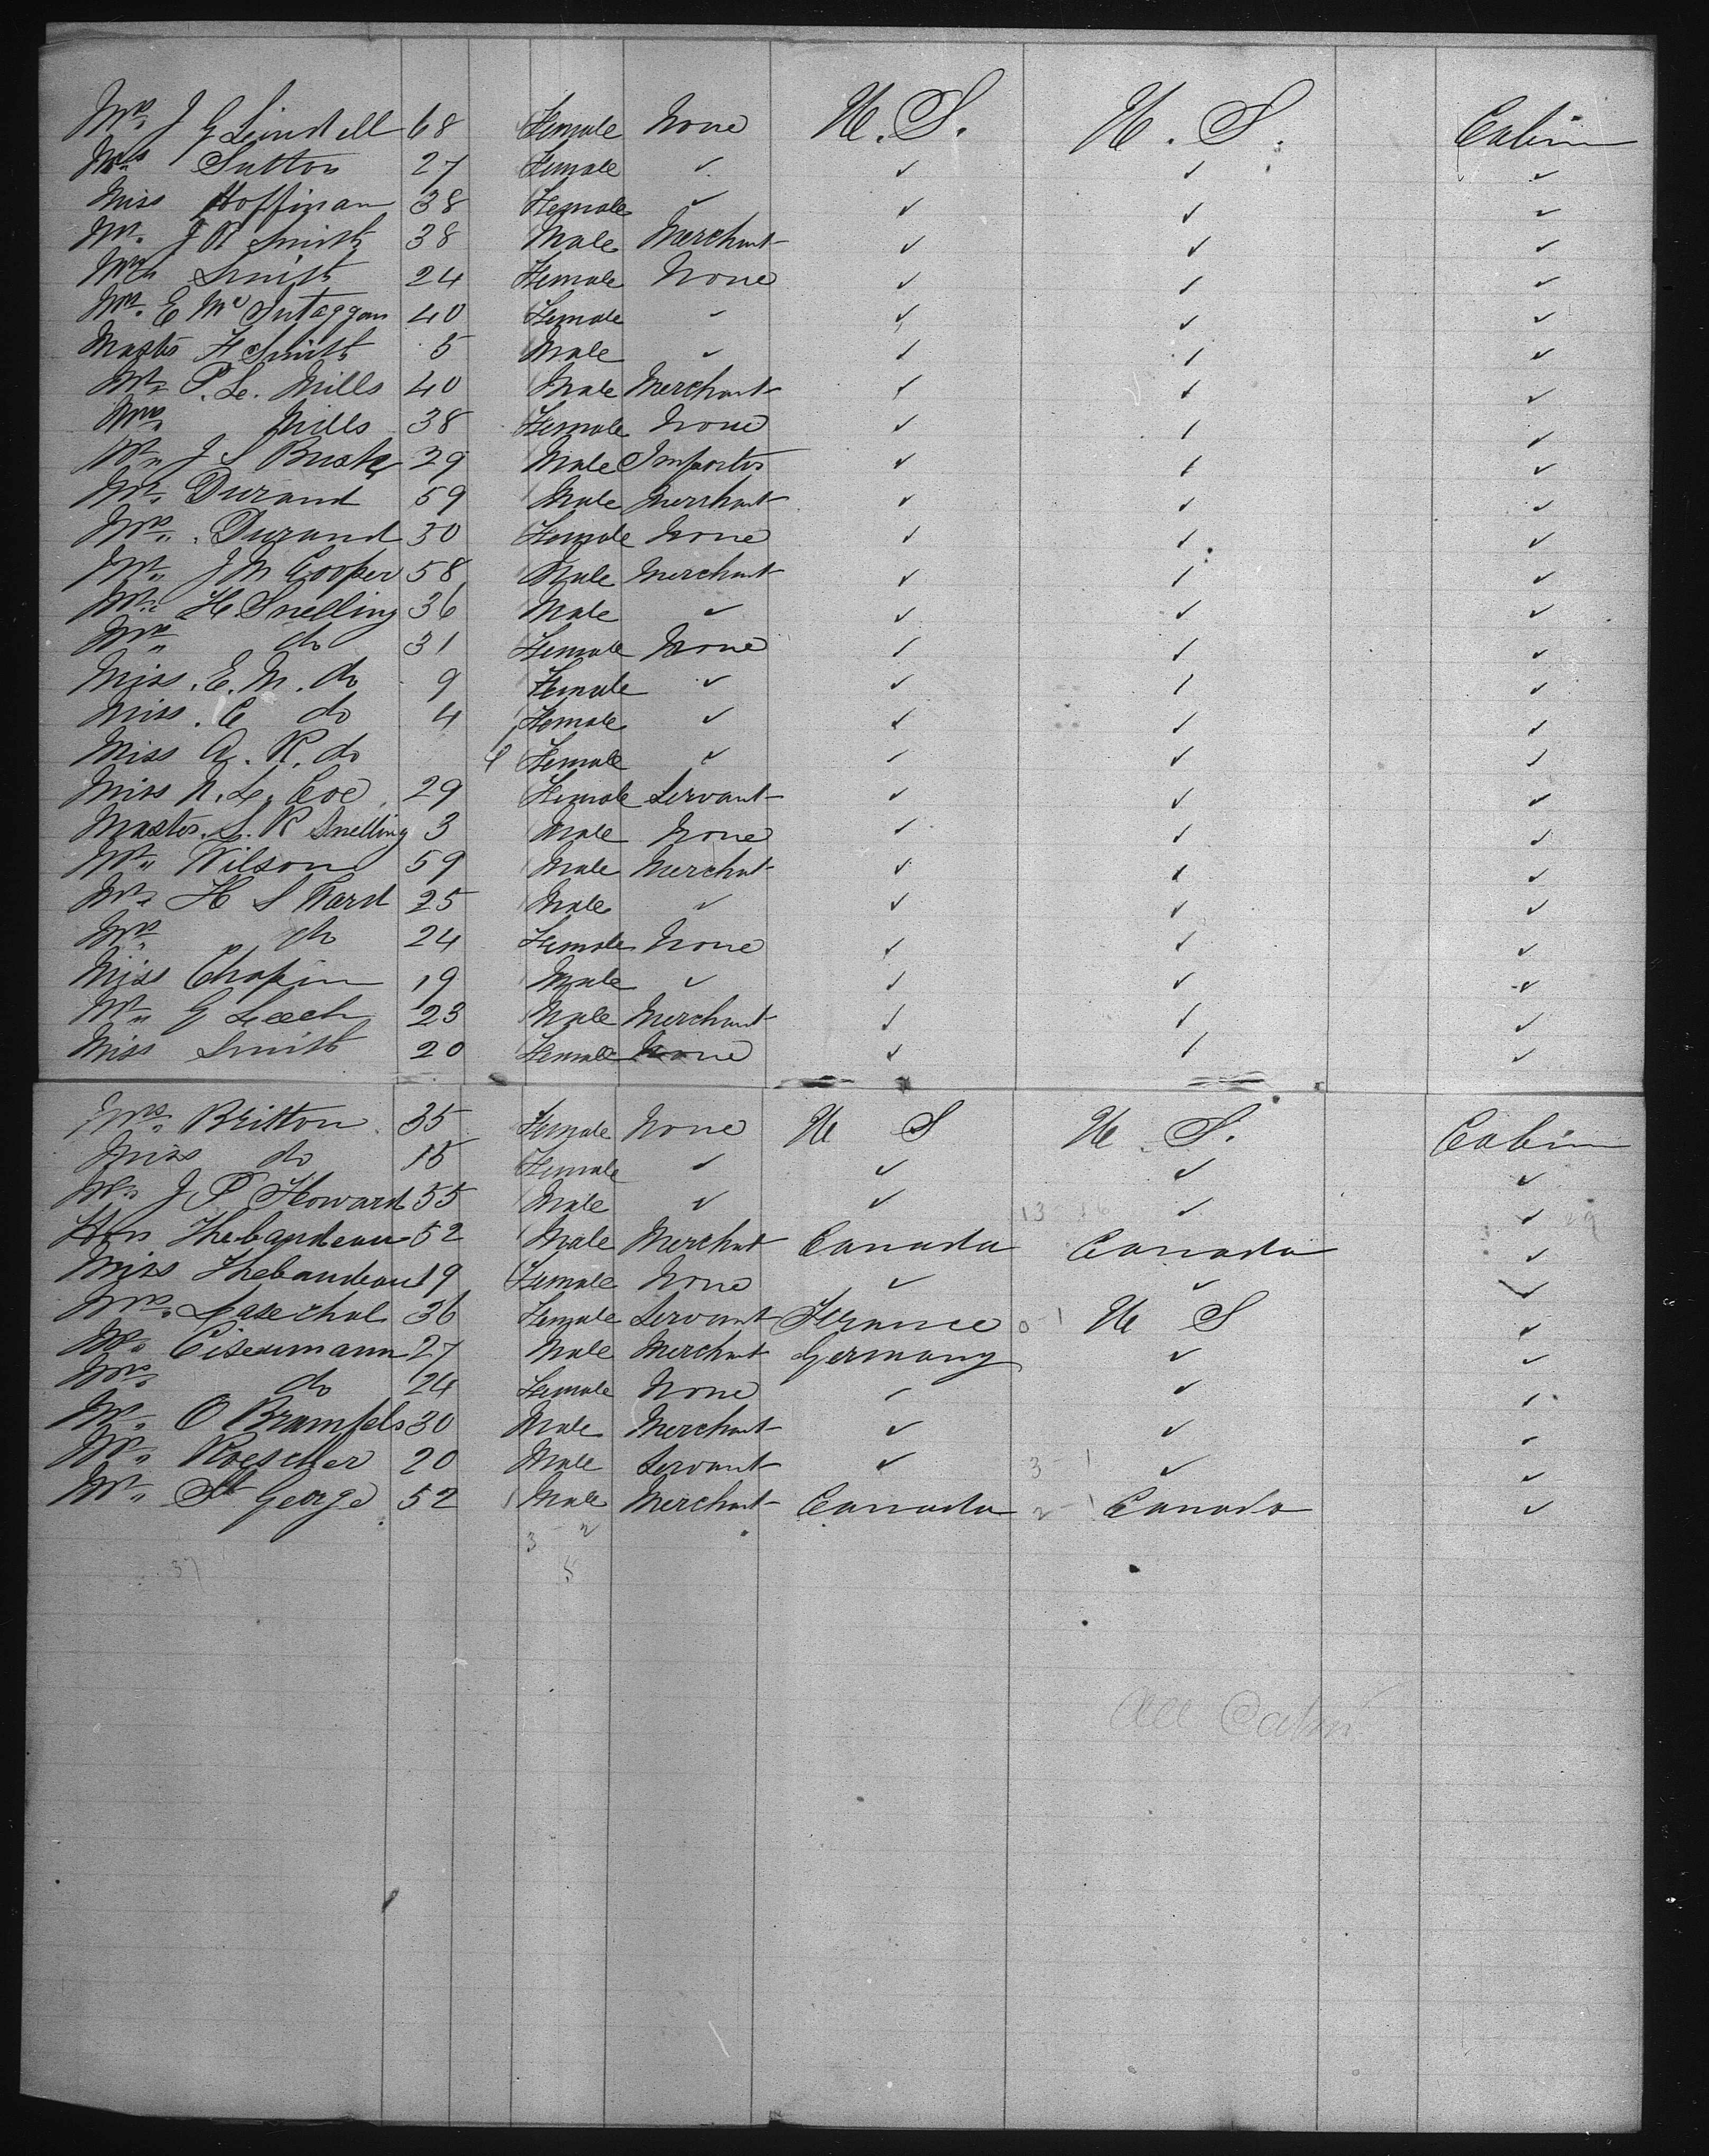 Mrs. J G Lindell 68 Female None U.S. U.S. Cabin
Mrs Sutton 27 Female ✓ ✓ ✓ ✓
Miss Hoffman 38 Female ✓ ✓ ✓ ✓
Mr. J R Smith 38 Male Merchant ✓ ✓ ✓
Mrs Smith 24 Female None ✓ ✓ ✓
Mrs. E 40 Female ✓ ✓ ✓ ✓
Master H Smith 5 Male ✓ ✓ ✓ ✓
Mr. P. L. Mills 40 Male Merchant ✓ ✓ ✓
Mrs. Mills 38 Female None ✓ ✓ ✓
Mr. J S 29 Male Importer ✓ ✓ ✓
Mr. Durand 59 Male Merchant ✓ ✓ ✓
Mrs. Durand 30 Female None ✓ ✓ ✓
Mr. J M Cooper 58 Male Merchant ✓ ✓ ✓
Mr. H Snelling 36 Male ✓ ✓ ✓ ✓
Mrs. do 31 Female None ✓ ✓ ✓
Miss. E. M. do 9 Female ✓ ✓ ✓ ✓
Miss. C do 4 Female ✓ ✓ ✓ ✓
Miss A. R. do 9 Female ✓ ✓ ✓ ✓
Miss N. L. Coe 29 Female Servant ✓ ✓ ✓
Master. S. R Snelling 3 Male None ✓ ✓ ✓
Mr. Wilson 59 Male Merchant ✓ ✓ ✓
Mr. H S Ward 25 Male ✓ ✓ ✓ ✓
Mrs. do 24 Female None ✓ ✓ ✓
Miss Chapin 19 Male ✓ ✓ ✓ ✓
Mr. G Leech 23 Male Merchant ✓ ✓ ✓
Miss Smith 20 Female None ✓ ✓ ✓
Mrs. Britton 35 Female None U S U. S. Cabin
Miss do 15 Female ✓ ✓ ✓ ✓
Mr. J P Howard 55 Male ✓ ✓ ✓ ✓
Hon Thebaudeau 52 Male Merchant Canada Canada ✓
Miss Thebaudeau 19 Female None ✓ ✓ ✓
Mrs. Laschal 36 Female Servant France U S ✓
Mr. Eisenmann 27 Male Merchant Germany ✓ ✓
Mrs. do 24 Female None ✓ ✓ ✓
Mr. O Brumfels 30 Male Merchant ✓ ✓ ✓
Mr. Roescher 20 Male Servant ✓ ✓ ✓
Mr. St George 52 Male Merchant Canada Canada ✓
3 2
37
All Cabin